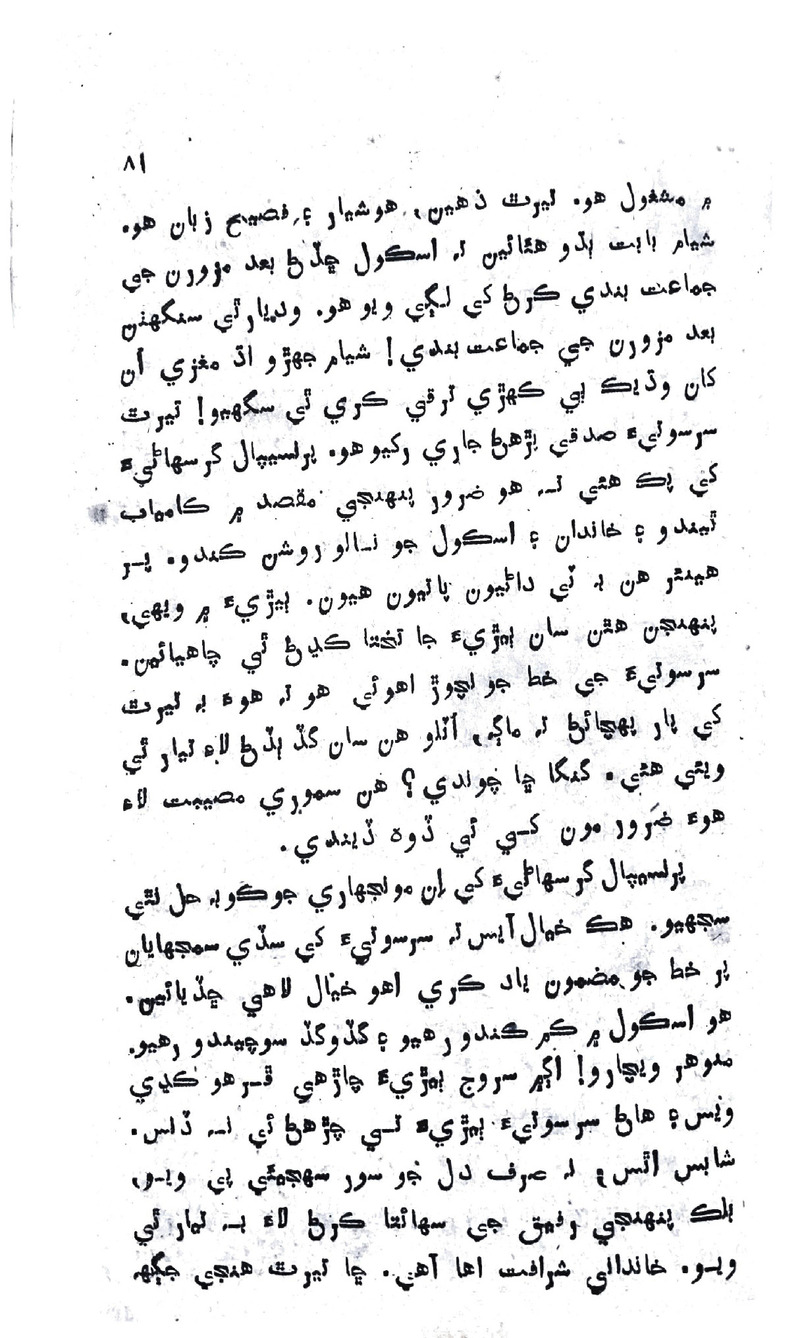 ۸۱
۾ مشغول هو. تيرٿ ذهين، هوشيار ۽ فصيح زبان هو.
شيام بابت ٻڌو هئائين تہ اسڪول ڇڏڻ بعد مزورن جي
جماعت بندي ڪرڻ کي لڳي ويو هو. وڊيارٿي سنگهٽن
بعد مزورن جي جماعت بندي! شيام جهڙو اڌ مغزي اُن
کان وڌيڪ ٻي ڪهڙي ترقي ڪري ٿي سگهيو! تيرٿ
سرسوتيءَ صدقي پڙهڻ جاري رکيو هو. پرنسيپال گرسهاڻيءَ
کي پڪ هئي تہ هو ضرور پنهنجي مقصد ۾ ڪامياب
ٿيندو ۽ خاندان ۽ اسڪول جو نالو روشن ڪندو. پر
هينئر هن بہ ٽي داڻيون پاتيون هيون. ٻيڙيءَ ۾ ويهي،
پنهنجن هٿن سان ٻيڙيءَ جا تختا ڪڍڻ ٿي چاهيائين.
سرسوتيءَ جي خط جو نچوڙ اهوئي هو تہ هوءَ بہ تيرٿ
کي پار پهچائڻ تہ ماڳ، اُٽلو هن سان گڏ ٻڏڻ لاءِ تيار ٿي
ويئي هئي. گنگا ڇا چوندي؟ هن سموري مصيبت لاءِ
هوءَ ضرور مون کي ئي ڏوهہ ڏيندي.
پرنسيپال گرسهاڻيءَ کي اِن مونجهاري جو ڪوبہ حل نٿي
سجهيو. هڪ خيال آيس تہ سرسوتيءَ کي سڏي سمجهايان
پر خط جو مضمون ياد ڪري اهو خيال لاهي ڇڏيائين.
هو اسڪول ۾ ڪم ڪندو رهيو ۽ گڏوگڏ سوچيندو رهيو.
منوهر ويچارو! اڳم سروج ٻيڙيءَ چاڙهي ڦرهو ڪڍي
ويس ۽ هاڻ سرسوتيءَ ٻيڙيءَ تي چڙهڻ ئي نہ ڏنس.
شابس اٿس، تہ صرف دل جو سور سهجيئي پي ويو،
بلڪ پنهنجي رفيق جي سهائتا ڪرڻ لاءِ بہ تيار ٿي
ويو. خانداني شرافت اها آهي. ڇا تيرٿ هنجي جڳهہ